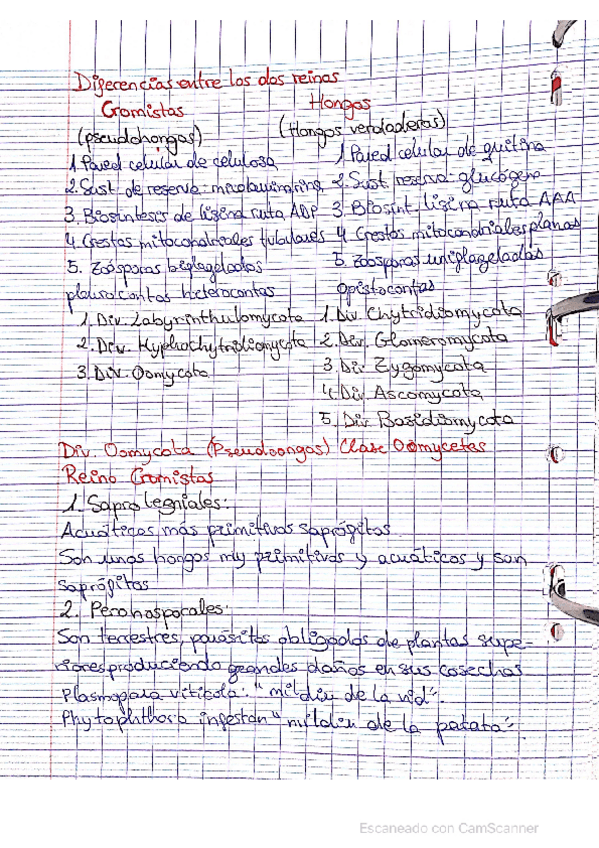 Diferencias entre los dos reinos
Cromistas Hongos
(pseudohongos) (Hongos verdaderos)
1. Pared celular de celulosa 1. Pared celular de quitina
2. Sust de reserva: 2. Sust reserva: glucógeno
3. Biosintesis de lisina ruta ADP 3. Biosint. lisina ruta AAA
4. Crestas mitocondriales tubulares 4. Crestas mitocondriales planas
5. Zoosporas biflageladas 5. Zoosporas uniflageladas
pleurocontas heterocontas opistocontas
1. Div. Labyrinthulomycota 1. Div Chytridiomycota
2. Div. Hyphochytridiomycota 2. Div. Glomeromycota
3. Div. Oomycota 3. Div Zygomycota
4. Div. Ascomycota
5. Div Basidiomycota
Div. Oomycota (Pseudoongos) Clase Oomycetas
Reino Cromistas
1. Saprolegniales:
Acuáticos más primitivos saprófitos
Son unos hongos my primitivos y acuáticos y son
saprófitos
2. Peronosporales:
Son terrestres, parásitos obligados de plantas supe-
riores produciendo grandes daños en sus cosechas
Plasmopara viticola: "mildiu de la vid".
Phytophthora infestan "mildiu de la patata".
Escaneado con CamScanner